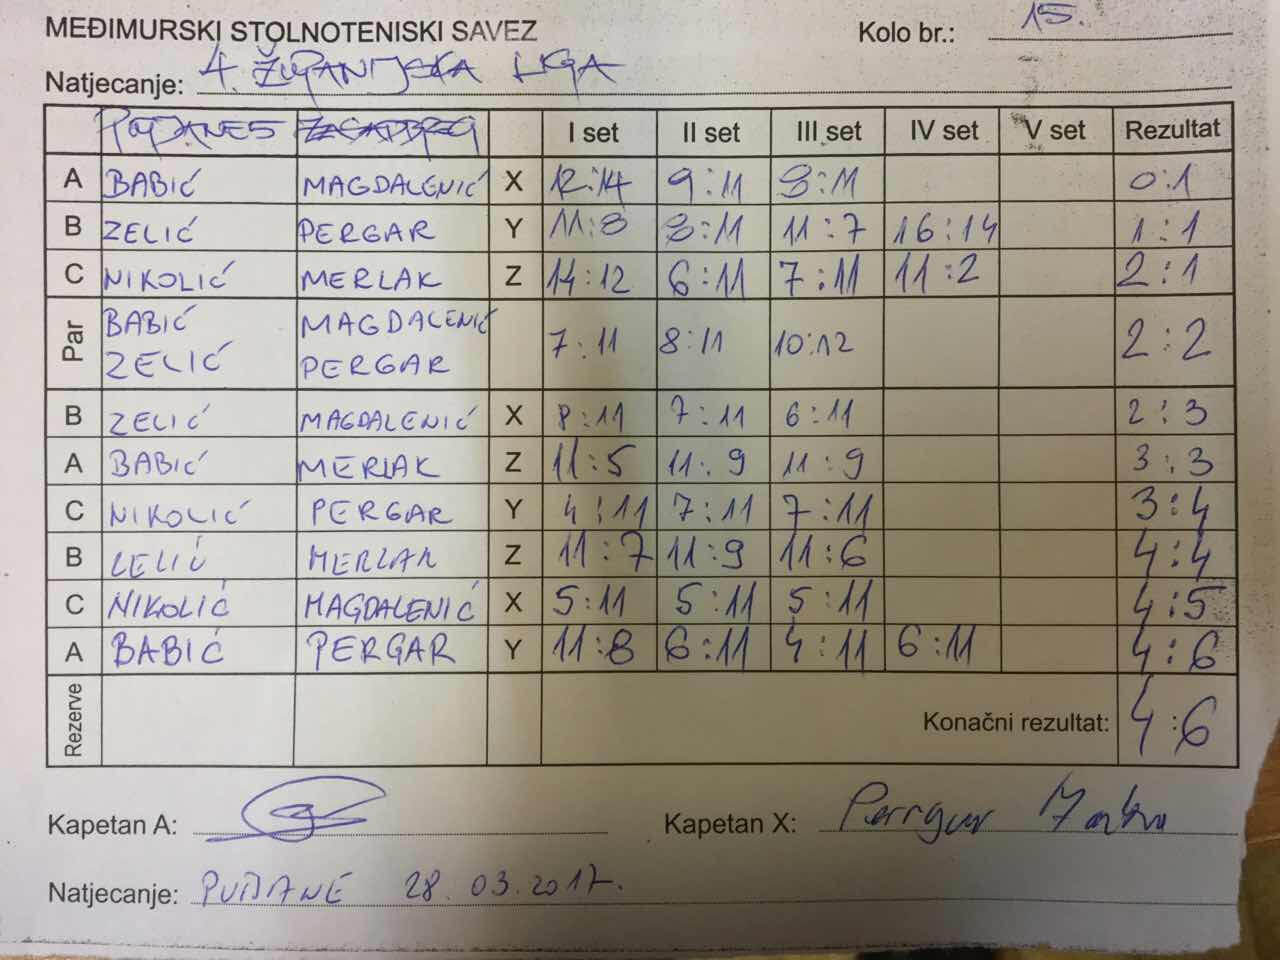 MEĐIMURSKI STOLNOTENISKI SAVEZ Kolo br.: 15.
Natjecanje: 4. ŽUPANIJSKA LIGA
I set II set III set IV set V set Rezultat
A BABIĆ MAGDALENIĆ X 12:14 9:11 8:11 0:1
B ZELIĆ PERGAR Y 11:8 8:11 11:7 16:14 1:1
C NIKOLIĆ MERLAK Z 14:12 6:11 7:11 11:2 2:1
Par BABIĆ MAGDALENIĆ 7:11 8:11 10:12 2:2
ZELIĆ PERGAR
B ZELIĆ MAGDALENIĆ X 8:11 7:11 6:11 2:3
A BABIĆ MERLAK Z 11:5 11:9 11:9 3:3
C NIKOLIĆ PERGAR Y 4:11 7:11 7:11 3:4
B ZELIĆ MERLAK Z 11:7 11:9 11:6 4:4
C NIKOLIĆ MAGDALENIĆ X 5:11 5:11 5:11 4:5
A BABIĆ PERGAR Y 11:8 6:11 4:11 6:11 4:6
Rezerve Konačni rezultat: 4:6
Kapetan A: Kapetan X:
Natjecanje: 28.03.2017.